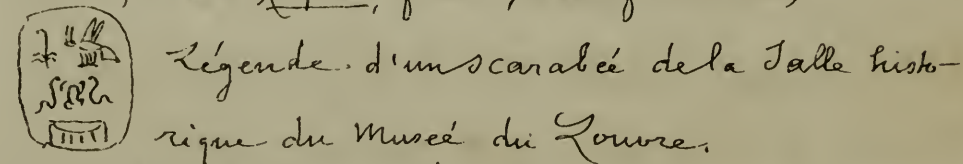 Légende d'un scarabeé de la Salle histo-
rique du Museé du Louvre.